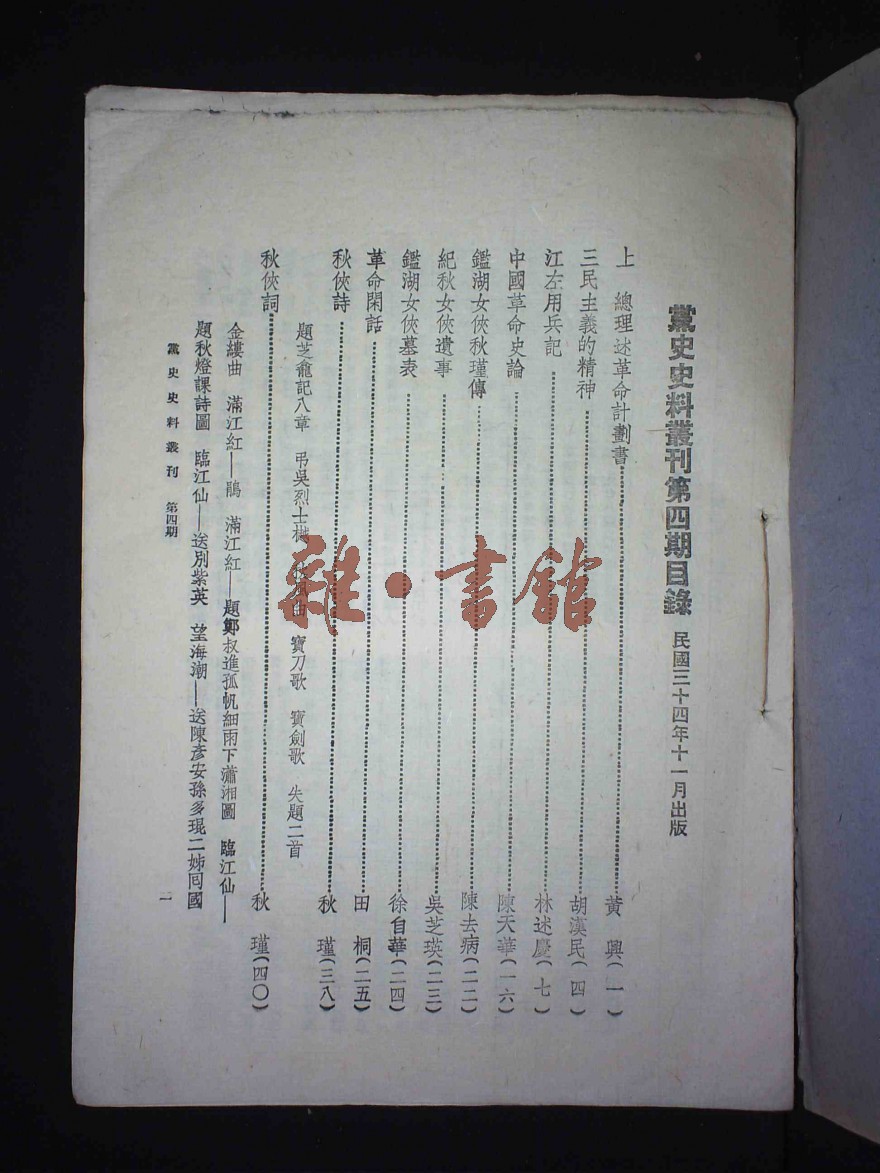 黨史史料叢刊第四期目錄 民國三十四年十一月出版
上 總理述革命計劃書……黃 興(一)
三民主義的精神……胡漢民(四)
江左用兵記……林述慶(七)
中國革命史論……陳天華(一六)
鑑湖女俠秋瑾傳……陳去病(二二)
紀秋女俠遺事……吳芝瑛(二三)
鑑湖女俠墓表……徐自華(二四)
革命閑話……田 桐(二五)
秋俠詩……秋 瑾(三八)
題芝龕記八章 弔吳烈士樾 寶刀歌 寶劍歌 失題二首
秋俠詞……秋 瑾(四〇)
金縷曲 滿江紅——鵑 滿江紅——題鄭叔進孤帆細雨下瀟湘圖 臨江仙——
題秋燈課詩圖 臨江仙——送別紫英 望海潮——送陳彥安孫多琨二姊囘國
黨史史料叢刊 第四期
一
雜·書館